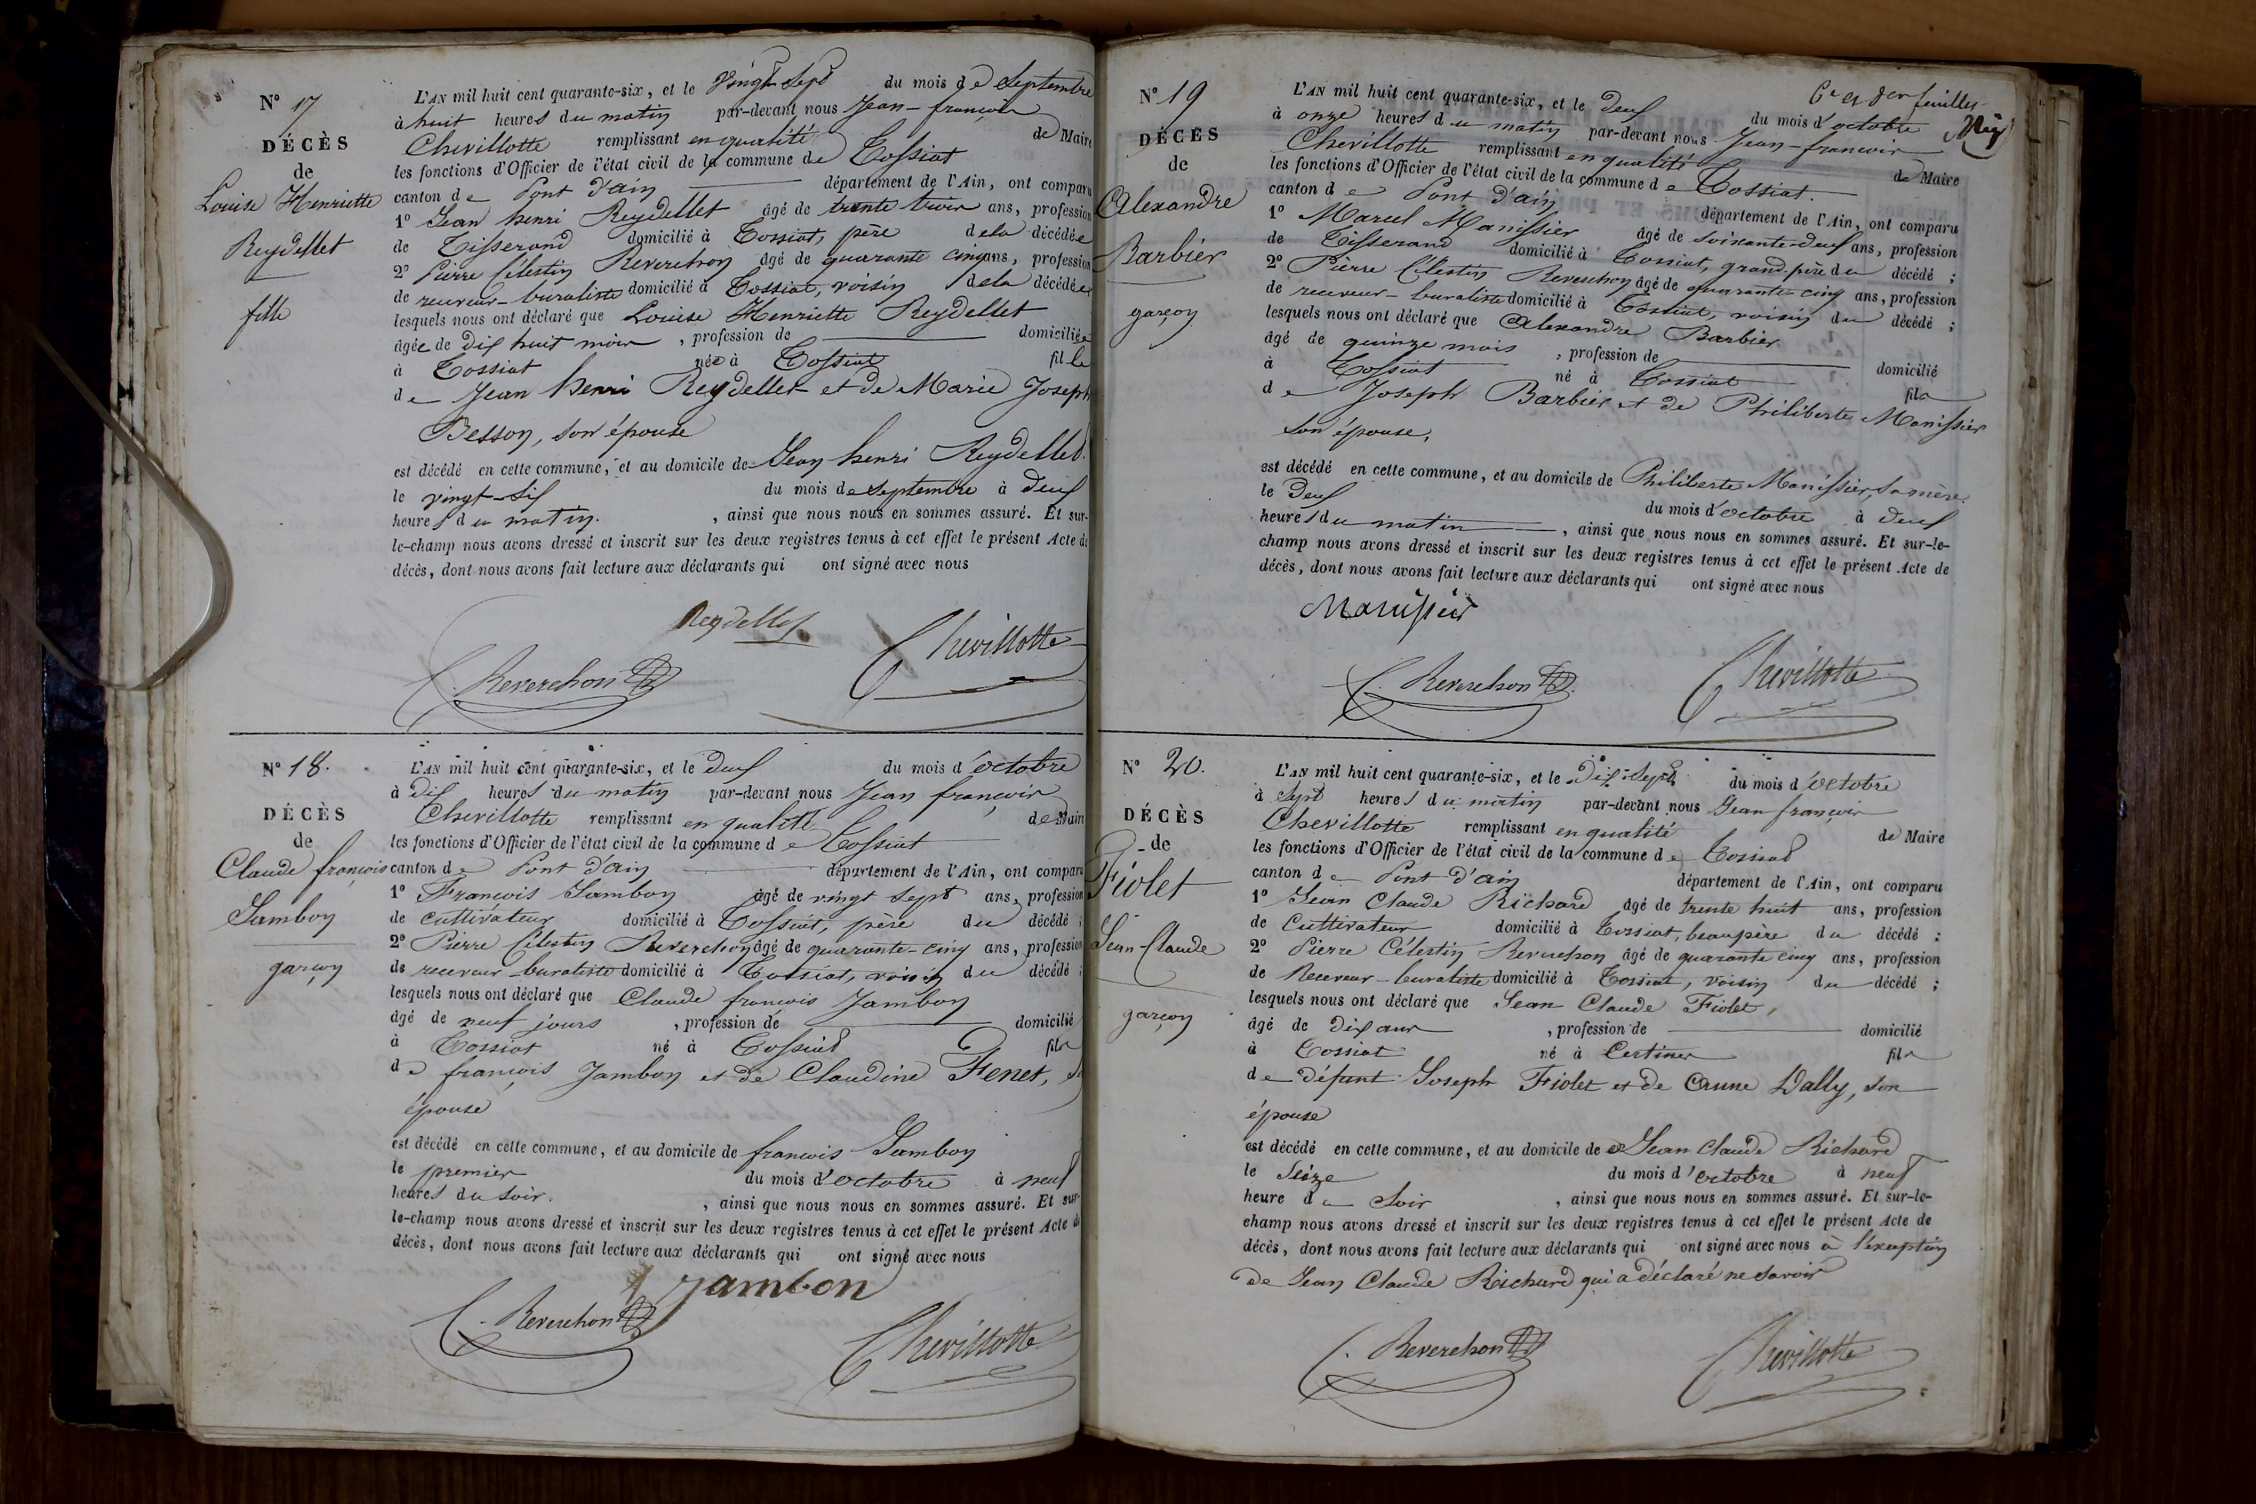 N° 17
DÉCÈS
de
Louise Henriette
Reydellet
fille
L'AN mil huit cent quarante-six, et le vingt Sept du mois de Septembre
à huit heures du matin par-devant nous Jean-françois
Chevillotte remplissant en qualité de Maire
les fonctions d'Officier de l'état civil de la commune de Tossiat
canton de Pont d'ain département de l'Ain, ont comparu
1° Jean henri Reydellet âgé de trente trois ans, profession
de Tisserand domicilié à Tossiat, père de la décédée
2° Pierre Célestin Reverchon âgé de quarante cinq ans, profession
de receveur-buraliste domicilié à Tossiat, voisin de la décédée
lesquels nous ont déclaré que Louise Henriette Reydellet
âgée de dix huit mois, profession de domiciliée
à Tossiat née à Tossiat fille
de Jean henri Reydellet et de Marie Joseph
Besson, son épouse
est décédé en cette commune, et au domicile de Jean henri Reydellet.
le vingt-Six du mois de Septembre à deux
heures du matin. , ainsi que nous nous en sommes assuré. Et sur-
le-champ nous avons dressé et inscrit sur les deux registres tenus à cet effet le présent Acte de
décès, dont nous avons fait lecture aux déclarants qui ont signé avec nous
Reydellet
C. Reverchon Chevillotte
N° 18.
DÉCÈS
de
Claude françois
Jambon
garçon
L'AN mil huit cent quarante-six, et le deux du mois d'octobre
à dix heures du matin par-devant nous Jean françois
Chevillotte remplissant en qualité de Maire
les fonctions d'Officier de l'état civil de la commune de Tossiat
canton de Pont d'ain département de l'Ain, ont comparu
1° François Jambon âgé de vingt sept ans, profession
de cultivateur domicilié à Tossiat, père du décédé ;
2° Pierre Célestin Reverchon âgé de quarante-cinq ans, profession
de receveur-buraliste domicilié à Tossiat, voisin du décédé ;
lesquels nous ont déclaré que Claude françois Jambon
âgé de neuf jours , profession de domicilié
à Tossiat né à Tossiat fils
de françois Jambon et de Claudine Fenet, Sn
épouse
est décédé en cette commune, et au domicile de françois Jambon
le premier du mois d'octobre à neuf
heures du soir. , ainsi que nous nous en sommes assuré. Et sur-
le-champ nous avons dressé et inscrit sur les deux registres tenus à cet effet le présent Acte de
décès, dont nous avons fait lecture aux déclarants qui ont signé avec nous
jambon
C. Reverchon Chevillotte
6e et der feuillet
N° 19
DÉCÈS
de
Alexandre
Barbier
garçon
L'AN mil huit cent quarante-six, et le deux du mois d'octobre
à onze heures du matin par-devant nous Jean-françois
Chevillotte remplissant en qualité de Maire
les fonctions d'Officier de l'état civil de la commune de Tossiat.
canton de Pont d'ain département de l'Ain, ont comparu
1° Marcel Manissier âgé de soixante-deux ans, profession
de Tisserand domicilié à Tossiat, grand-père du décédé ;
2° Pierre Célestin Reverchon âgé de quarante-cinq ans, profession
de receveur-buraliste domicilié à Tossiat, voisin du décédé ;
lesquels nous ont déclaré que Alexandre Barbier
âgé de quinze mois , profession de domicilié
à Tossiat né à Tossiat fils
de Joseph Barbier et de Philiberte Manissier
son épouse,
est décédé en cette commune, et au domicile de Philiberte Manissier, sa mère.
le deux du mois d'octobre à deux
heures du matin , ainsi que nous nous en sommes assuré. Et sur-le-
champ nous avons dressé et inscrit sur les deux registres tenus à cet effet le présent Acte de
décès, dont nous avons fait lecture aux déclarants qui ont signé avec nous
Manissier
C. Reverchon Chevillotte
N° 20.
DÉCÈS
de
Fiolet
Jean Claude
garçon
L'AN mil huit cent quarante-six, et le Dix-Sept du mois d'octobre
à sept heures du matin par-devant nous Jean françois
Chevillotte remplissant en qualité de Maire
les fonctions d'Officier de l'état civil de la commune de Tossiat
canton de Pont d'ain département de l'Ain, ont comparu
1° Jean Claude Richard âgé de trente huit ans, profession
de Cultivateur domicilié à Tossiat, beaupère du décédé ;
2° Pierre Célestin Reverchon âgé de quarante cinq ans, profession
de Receveur-buraliste domicilié à Tossiat, voisin du décédé ;
lesquels nous ont déclaré que Jean Claude Fiolet,
âgé de dix ans , profession de domicilié
à Tossiat né à Certines fils
de défunt Joseph Fiolet et de Anne Dally, son
épouse
est décédé en cette commune, et au domicile de Jean Claude Richard
le Seize du mois d'octobre à neuf
heure du Soir , ainsi que nous nous en sommes assuré. Et sur-le-
champ nous avons dressé et inscrit sur les deux registres tenus à cet effet le présent Acte de
décès, dont nous avons fait lecture aux déclarants qui ont signé avec nous à l'éxception
de Jean Claude Richard qui a déclaré ne savoir
C. Reverchon Chevillotte